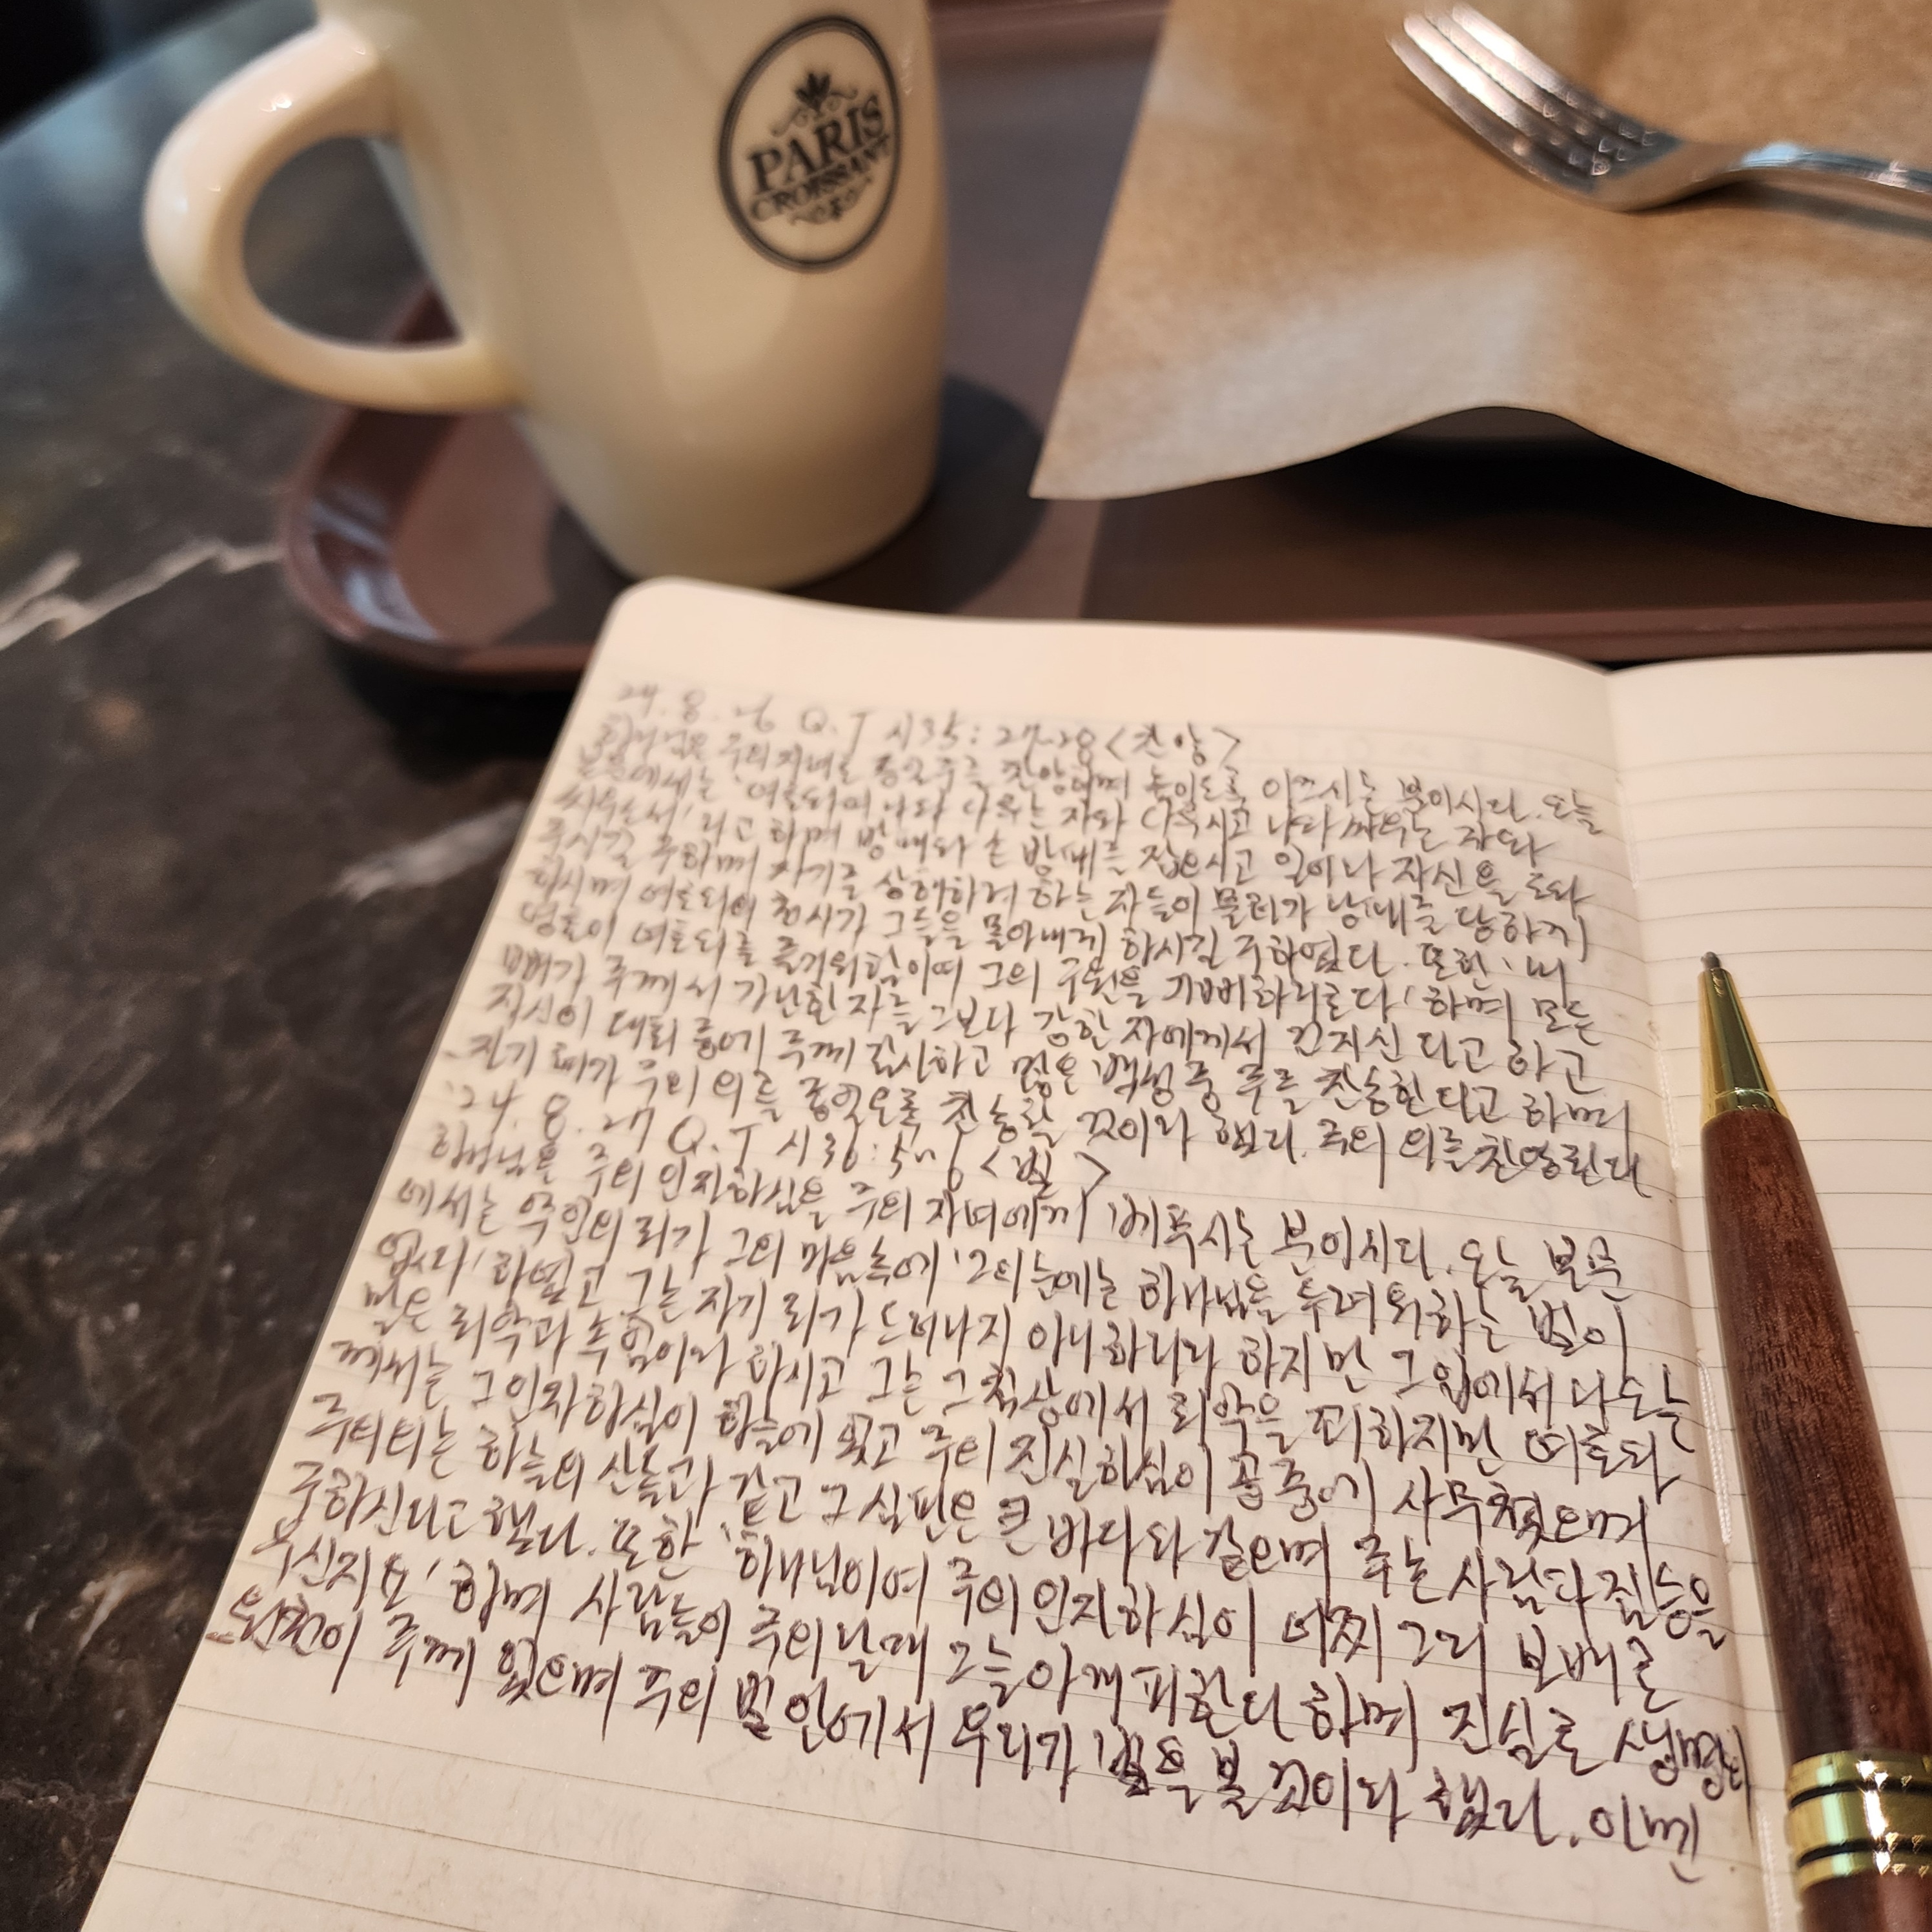 PARIS
CROISSANT
24. 8. 26 Q.T 시35: 27-28 <찬양>
하나님은 주의 자녀로 종일 주를 찬양하며 높이도록 이끄시는 분이시다. 오늘
본문에서는 '여호와여 나와 다투는 자와 다투시고 나와 싸우는 자와
싸우소서' 라고 하며 방패와 손 방패를 잡으시고 일어나 자신을 도와
주시길 구하며 자기를 상해하려 하는 자들이 물러가 낭패를 당하게
하시며 여호와의 천사가 그들을 몰아내게 하시길 구하였다. 또한 '내
영혼이 여호와를 즐거워함이여 그의 구원을 기뻐하리로다' 하며 모든
뼈가 주께서 가난한 자를 그보다 강한 자에게서 건지신다고 하고
자신이 대회 중에 주께 감사하고 많은 백성 중 주를 찬송한다고 하며
자기 혀가 주의 의를 종일토록 찬송할 것이라 했다. 주의 의를 찬양한다
'24. 8. 27 Q.T 시36: 5~9 <빛>
하나님은 주의 인자하심을 주의 자녀에게 베푸시는 분이시다. 오늘 본문
에서는 악인의 죄가 그의 마음속에 '그의 눈에는 하나님을 두려워하는 빛이
없다' 하였고 그는 자기 죄가 드러나지 아니하리라 하지만 그 입에서 나오는
말은 죄악과 속임이라 하시고 그는 그 침상에서 죄악을 꾀하지만 여호와
께서는 그 인자하심이 하늘에 있고 주의 진실하심이 공중에 사무쳤으며
주의 의는 하늘의 산들과 같고 그 심판은 큰 바다와 같으며 주는 사람과 짐승을
구하신다고 했다. 또한 '하나님이여 주의 인자하심이 어찌 그리 보배로
우신지요' 하며 사람들이 주의 날개 그늘 아래 피한다 하며 진실로 생명의
원천이 주께 있으며 주의 빛 안에서 우리가 빛을 볼 것이라 했다. 아멘